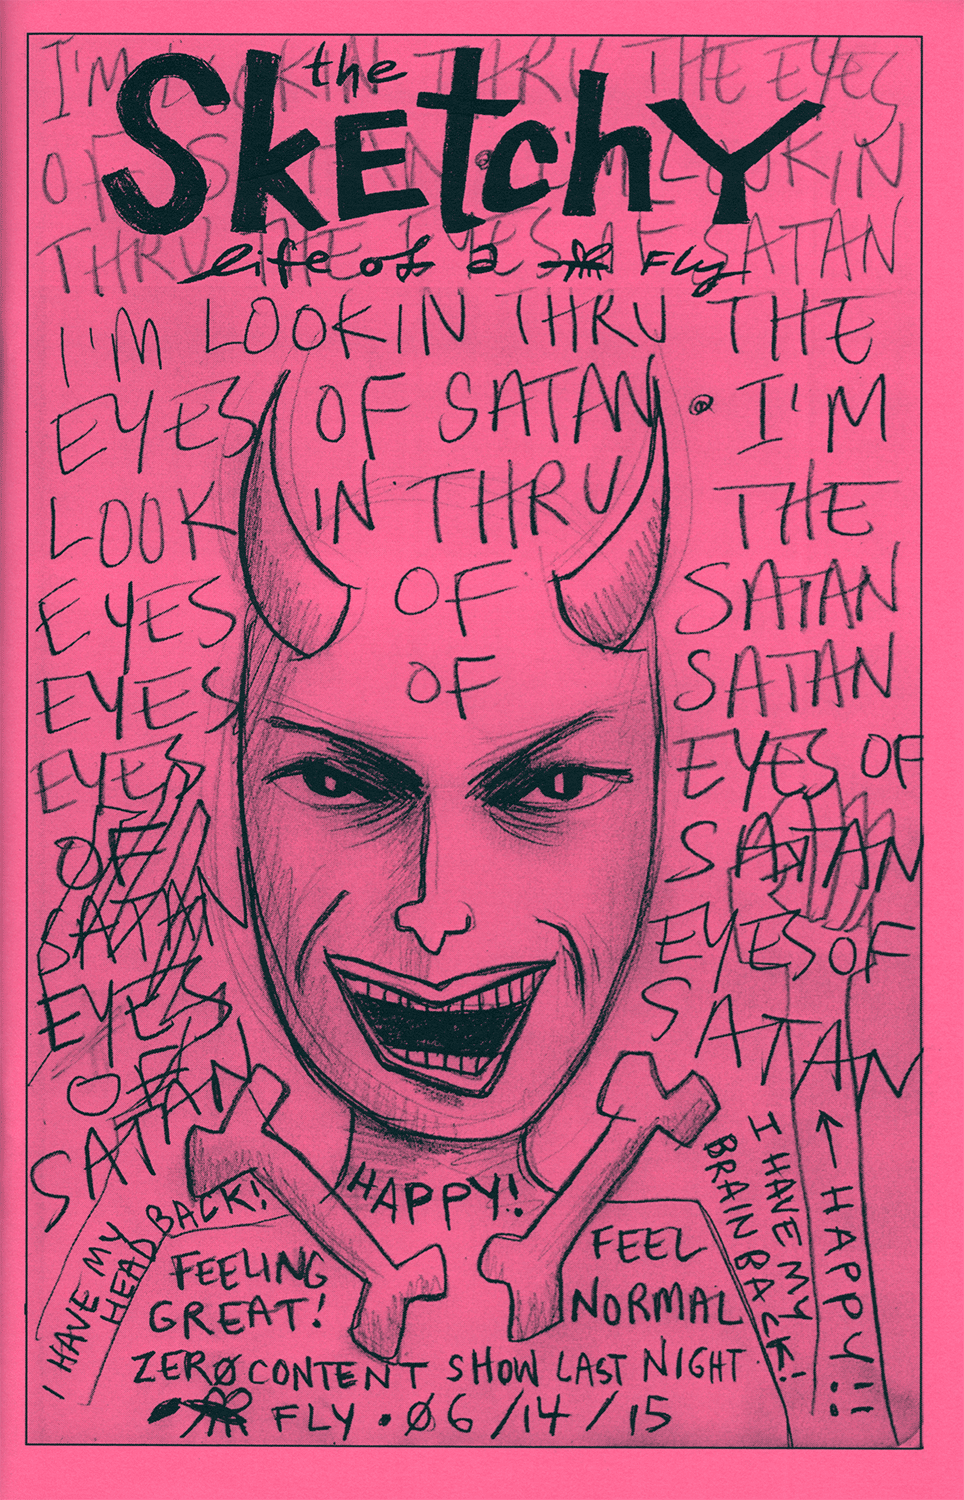 the
SkEtchY
life of a FLY
I'M LOOKIN THRU THE EYES
OF SATAN • I'M LOOKIN
THRU THE EYES OF SATAN
I'M LOOKIN THRU THE
EYES OF SATAN • I'M
LOOK IN THRU THE
EYES OF SATAN
EYES OF SATAN
EYES EYES OF
OF SATAN
SATAN EYES OF
EYES SATAN
OF
SATAN
HAPPY!
I HAVE MY
HEAD BACK!
FEELING
GREAT!
FEEL
NORMAL
I HAVE MY
BRAIN BACK!
← HAPPY!!
ZERØ CONTENT SHOW LAST NIGHT
FLY • Ø6/14/15